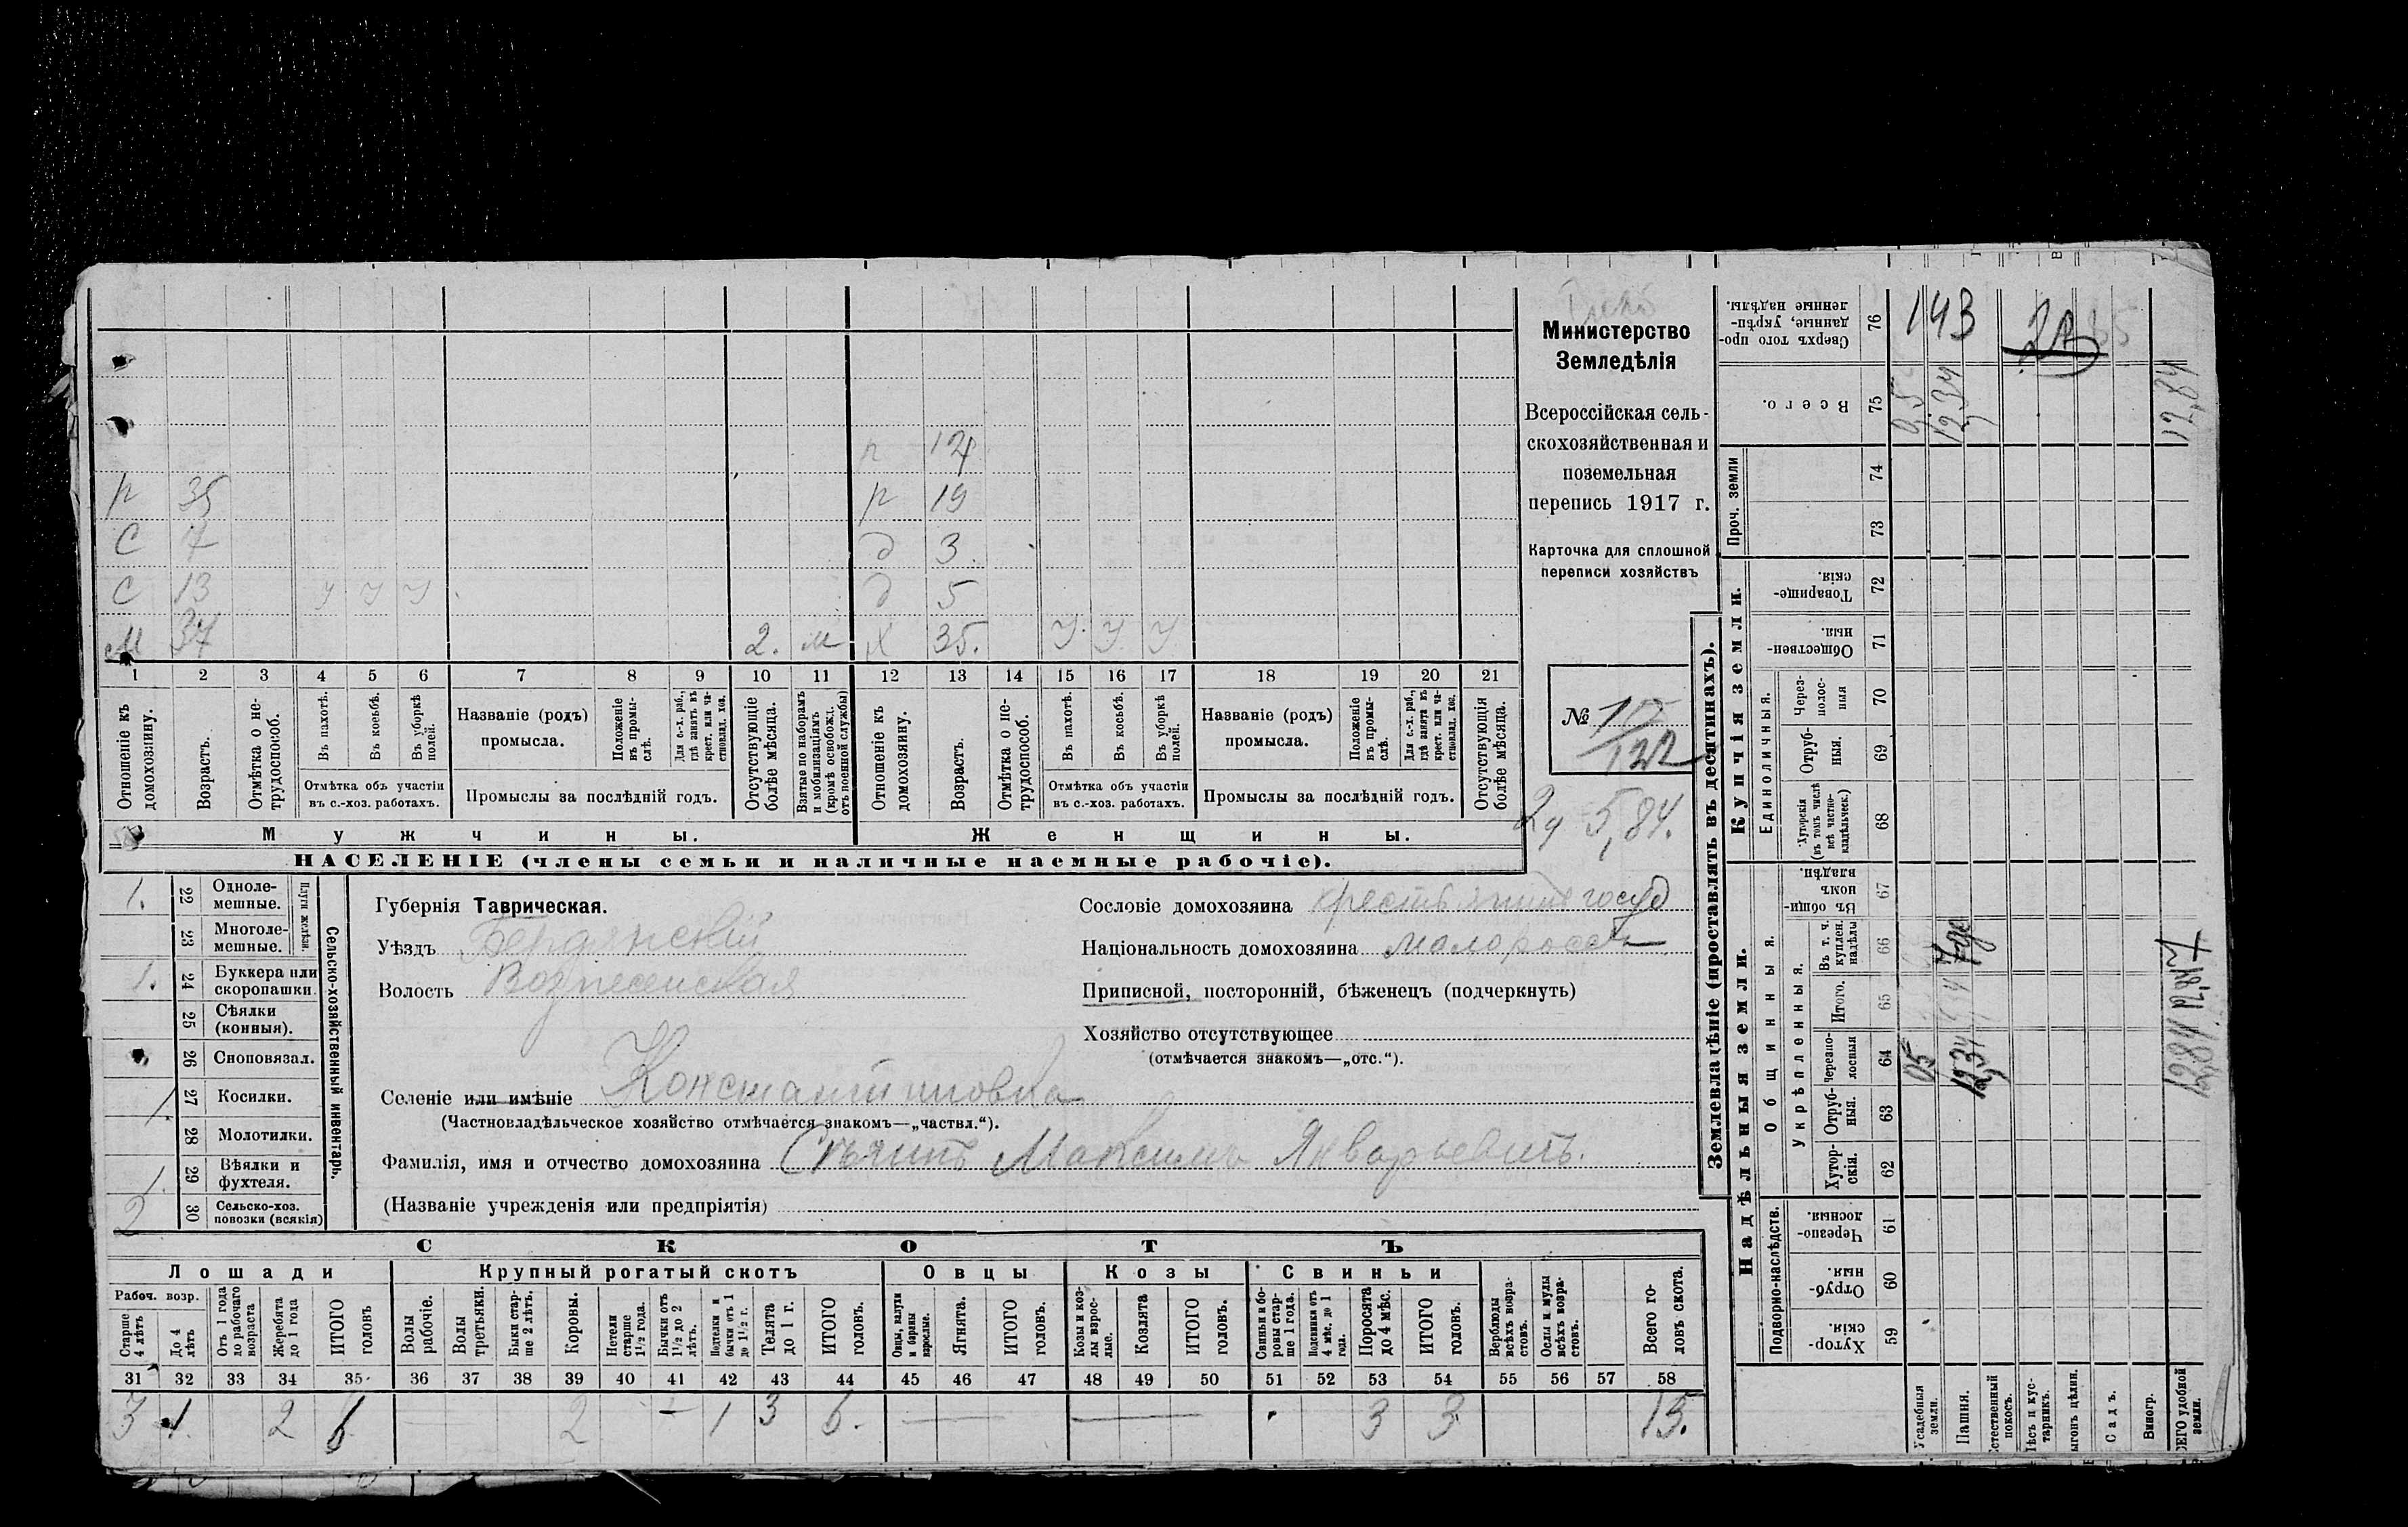 Министерство
Земледѣлія
Всероссійская сель-
скохозяйственная и
поземельная
перепись 1917 г.
Карточка для сплошной
переписи хозяйствъ
№ 122
5,84.
р 12
р 35 р 19
С 7 д 3
С 13 у у у д 5
М 37 2. м Х 35. у у у
1 2 3 4 5 6 7 8 9 10 11 12 13 14 15 16 17 18 19 20 21
Отношеніе къ домохозяину.
Возрастъ.
Отмѣтка о не-трудоспособ.
Въ пахотѣ.
Въ косьбѣ.
Въ уборкѣ полей.
Отмѣтка объ участіи
въ с.-хоз. работахъ.
Названіе (родъ)
промысла.
Положеніе въ промы-слѣ.
Для с.-х. раб., гдѣ занятъ въ крест. или ча-стновлад. хоз.
Промыслы за послѣдній годъ.
Отсутствующіе болѣе мѣсяца.
Взятые по наборамъ и мобилизаціямъ (кромѣ освобожд. отъ военной службы)
Отношеніе къ домохозяину.
Возрастъ.
Отмѣтка о не-трудоспособ.
Въ пахотѣ.
Въ косьбѣ.
Въ уборкѣ полей.
Отмѣтка объ участіи
въ с.-хоз. работахъ.
Названіе (родъ)
промысла.
Положеніе въ промы-слѣ.
Для с.-х. раб., гдѣ занята въ крест. или ча-стновлад. хоз.
Промыслы за послѣдній годъ.
Отсутствующія болѣе мѣсяца.
Мужчины. Женщины.
НАСЕЛЕНІЕ (члены семьи и наличные наемные рабочіе).
Сельско-хозяйственный инвентарь.
Плуги желѣзн.
1. 22 Однолемешные.
23 Многолемешные.
1. 24 Буккера или скоропашки.
25 Сѣялки (конныя).
26 Сноповязал.
1 27 Косилки.
28 Молотилки.
1. 29 Вѣялки и фухтеля.
2 30 Сельско-хоз. повозки (всякія)
Губернія Таврическая.
Уѣздъ Бердянскій
Волость Вознесенская
Селеніе или имѣніе Константиновка
(Частновладѣльческое хозяйство отмѣчается знакомъ—„частвл.“).
Фамилія, имя и отчество домохозяина Максимъ Январьевичъ.
(Названіе учрежденія или предпріятія)
Сословіе домохозяина крестьянинъ госуд
Національность домохозяина малороссъ
Приписной, посторонній, бѣженецъ (подчеркнуть)
Хозяйство отсутствующее
(отмѣчается знакомъ—„отс.“).
СКОТЪ
Лошади Крупный рогатый скотъ Овцы Козы Свиньи
Рабоч. возр.
Старше 4 лѣтъ
До 4 лѣтъ
Отъ 1 года до рабочаго возраста
Жеребята до 1 года
ИТОГО головъ
Волы рабочіе.
Волы третьяки.
Быки стар-ше 2 лѣтъ.
Коровы.
Нетели старше 1½ года.
Бычки отъ 1½ до 2 лѣтъ.
Подтелки и бычки отъ 1 до 1½ г.
Телята до 1 г.
ИТОГО головъ.
Овцы, валухи и бараны взрослые.
Ягнята.
ИТОГО головъ.
Козы и коз-лы взрос-лые.
Козлята
ИТОГО головъ.
Свиньи и бо-ровы стар-ше 1 года.
Подсвинки отъ 4 мѣс. до 1 года.
Поросята до 4 мѣс.
ИТОГО головъ.
Верблюды всѣхъ возра-стовъ.
Ослы и мулы всѣхъ возра-стовъ.
Всего го-ловъ скота.
31 32 33 34 35 36 37 38 39 40 41 42 43 44 45 46 47 48 49 50 51 52 53 54 55 56 57 58
3 1 2 6 2 1 3 6. 3 3 15.
Землевладѣніе (проставлять въ десятинахъ).
Надѣльныя земли. Купчія земли. Проч. земли
Подворно-наслѣдств.
Общинныя.
Укрѣпленныя.
Единоличныя.
Хутор-скія. 59
Отруб-ныя. 60
Черезпо-лосныя. 61
Хутор-скія. 62
Отруб-ныя. 63
Черезпо-лосныя 64
Итого. 65
Въ т. ч. куплен. надѣлы 66
Въ общи-номъ владѣн. 67
Хуторскія (въ томъ числѣ всѣ частно-владѣльческ.) 68
Отруб-ныя. 69
Через-полос-ныя 70
Обществен-ныя. 71
Товарище-скія. 72
73
74
Всего. 75
Сверхъ того про-данные, укрѣп-ленные надѣлы. 76
Усадебныя земли. 05 0,5
Пашня. 12,34 12,34
Естественный покосъ.
Лѣсъ и кус-тарникъ.
Выгонъ цѣлин.
Садъ.
Виногр.
ВСЕГО удобной земли. 12,84 12,84 12,84
143